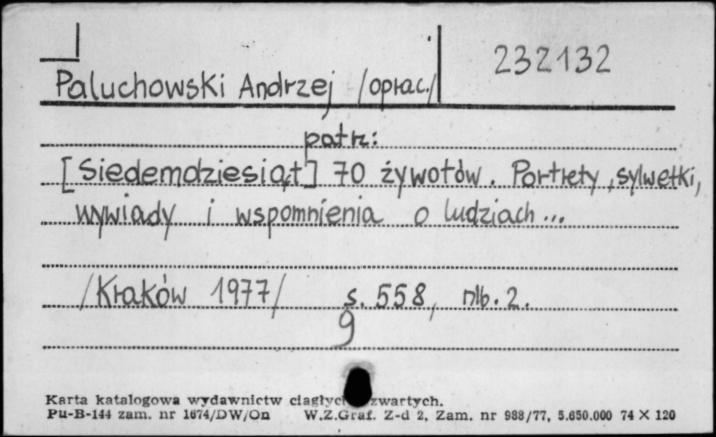 232132
Paluchowski Andrzej /oprac./
patrz:
[Siedemdziesiąt] 70 żywotów. Portrety, sylwetki,
wywiady i wspomnienia o ludziach...
/Kraków 1977/ s. 558, nlb. 2.
9
Karta katalogowa wydawnictw ciągłych zwartych.
Pu-B-144 zam. nr 1674/DW/Qn W.Z.Graf. Z-d 2, Zam. nr 988/77, 5.650.000 74 X 120